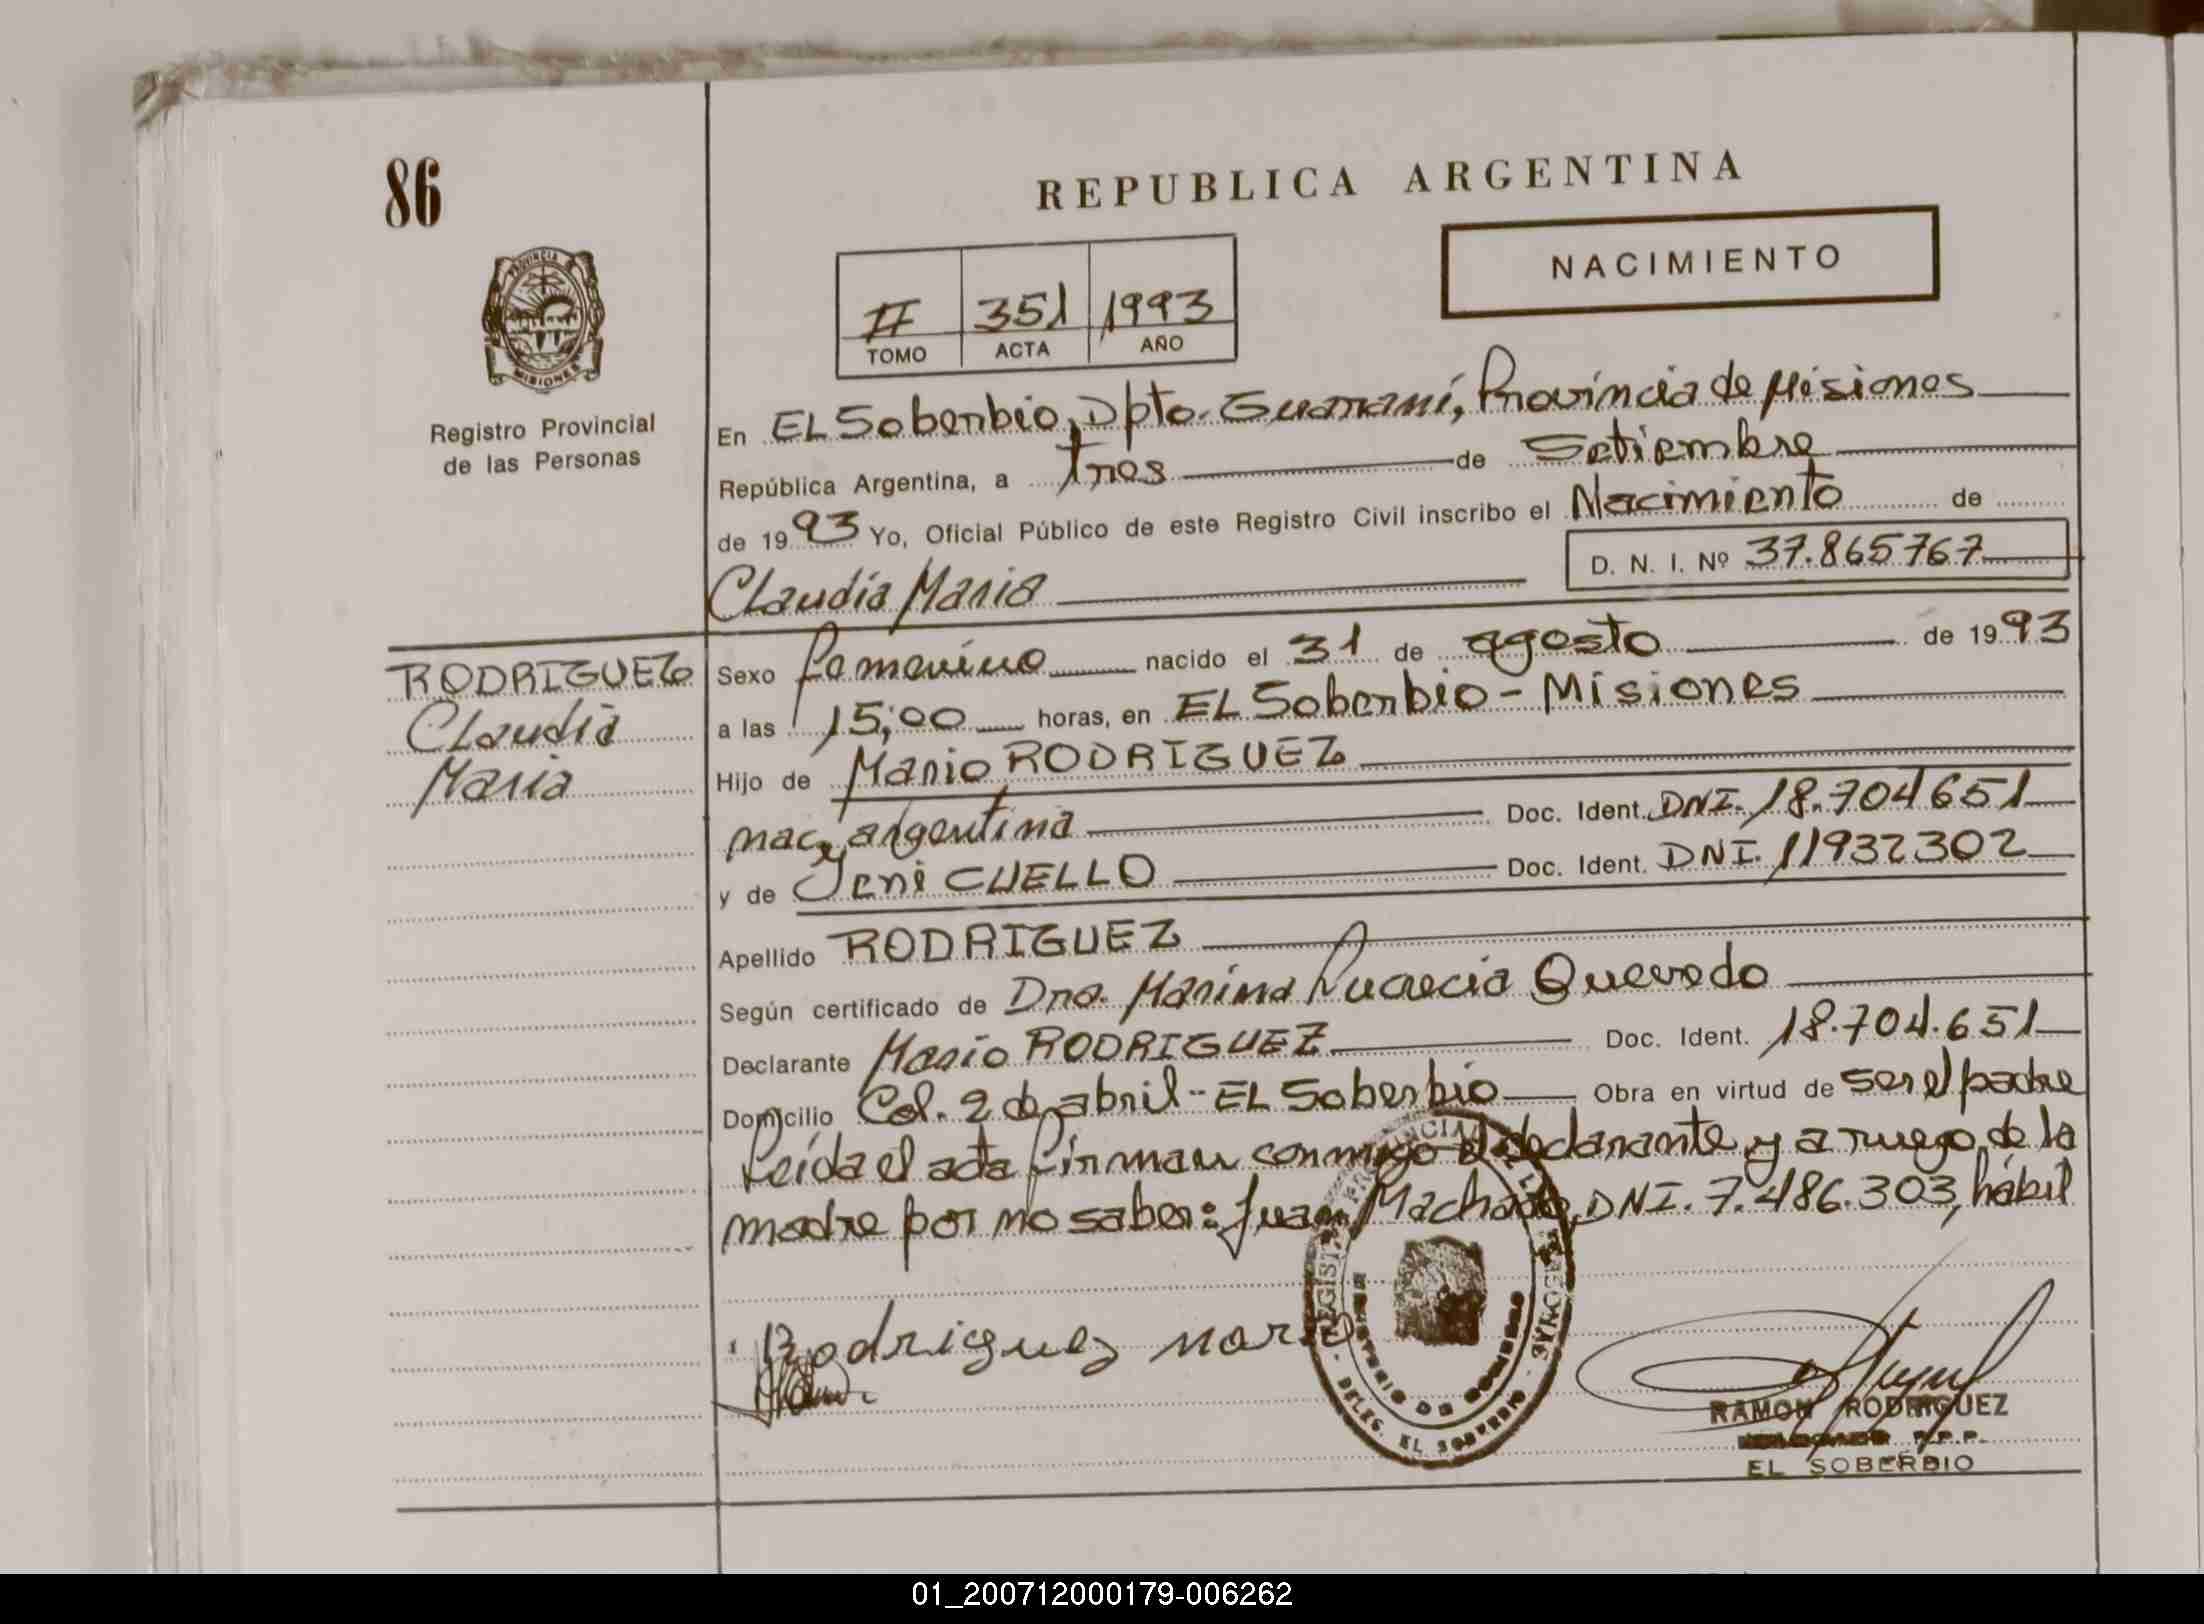 86
REPUBLICA ARGENTINA
NACIMIENTO
PROVINCIA
MISIONES
Registro Provincial
de las Personas
II 351 1993
TOMO ACTA AÑO
En EL Soberbio, Dpto. Guaraní, Provincia de Misiones
República Argentina, a tres de Setiembre
de 1993 Yo, Oficial Público de este Registro Civil inscribo el Nacimiento de
D. N. I. Nº 37.865767
Claudia Maria
RODRIGUEZ
Claudia
Maria
Sexo femenino nacido el 31 de agosto de 1993
a las 15,00 horas, en EL Soberbio - Misiones
Hijo de Mario RODRIGUEZ
nac. argentina Doc. Ident. DNI. 18.704651
y de Jeni CUELLO Doc. Ident. DNI. 11932302
Apellido RODRIGUEZ
Según certificado de Dra. Marina Lucrecia Quevedo
Declarante Mario RODRIGUEZ Doc. Ident. 18.704.651
Domicilio Col. 2 de abril - EL Soberbio Obra en virtud de ser el padre
Leída el acta firman conmigo el declarante y a ruego de la
madre por no saber: Juan Machado, DNI. 7.486.303, hábil
Rodriguez mario
DELEG. EL SOBERBIO
RAMON RODRIGUEZ
R.P.P.
EL SOBERBIO
01_200712000179-006262